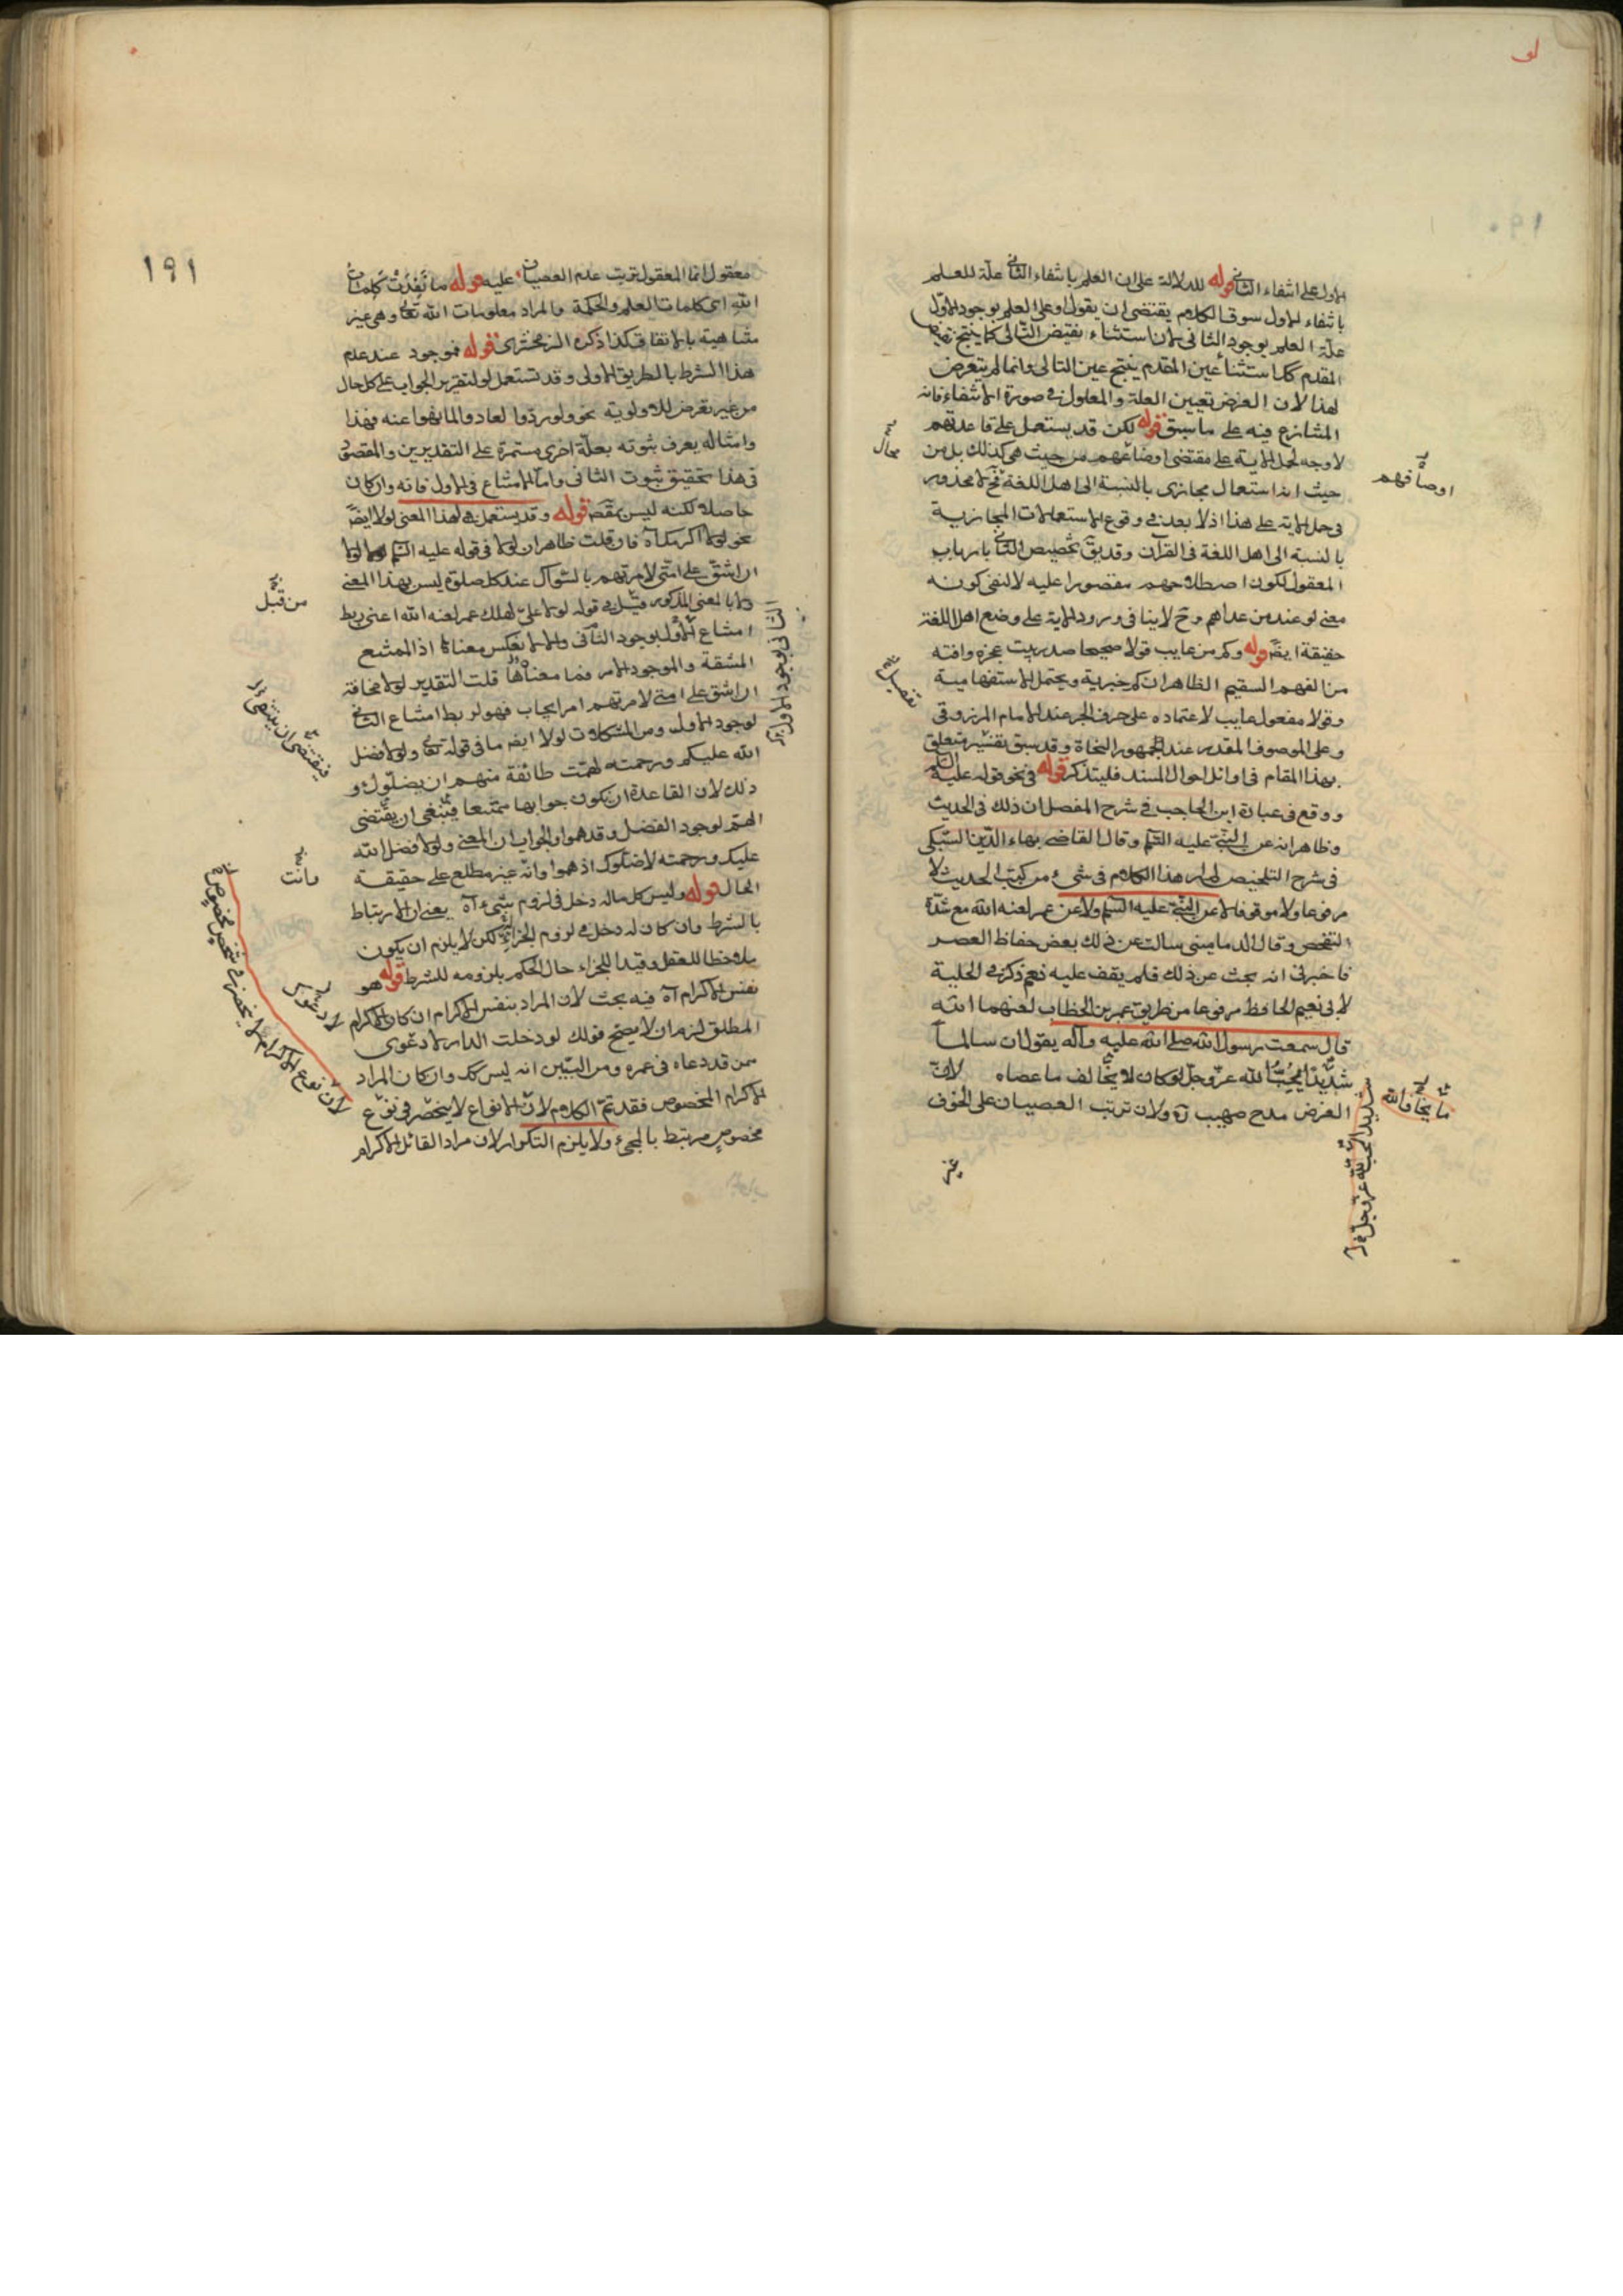 لو
الاول على انتفاء الثانى قوله للدلالة على ان العلم بانتفاء الثانى علة للعلم
بانتفاء الاول سوق الكلام يقتضى ان يقول او على العلم بوجود الاول
علة العلم بوجود الثانى لان استثناء نقيض التالى كما ينتج نقيض
المقدم كذا استثناء عين المقدم ينتج عين التالى وانما لم يتعرض
لهذا لان الغرض تعيين العلة والمعلول فى صورة الانتفاء فانه
المتنازع فيه على ما سبق قوله لكن قد يستعمل على قاعدتهم
لا وجه لحمل الاية على مقتضى اوضاعهم من حيث هى كذلك بل من
حيث انه استعمال مجازى بالنسبة الى اهل اللغة فح لا محذور
فى حمل الاية على هذا اذ لا بعد فى وقوع الاستعمالات المجازية
بالنسبة الى اهل اللغة فى القرآن وقد يق تخصيص الثانى بارباب
المعقول لكون اصطلاحهم مقصورا عليه لا لنفى كونه
معنى لو عند من عداهم وح لا ينافى ورود الاية على وضع اهل اللغة
حقيقة ايضا قوله وكم من عايب قولا صحيحا صدر بيت عجزه وافته
من الفهم السقيم الظاهر ان كم خبرية ويحتمل الاستفهامية
وقولا مفعول عايب لاعتماده على حرف الجر عند الامام المرزوقى
وعلى الموصوف المقدر عند الجمهور النحاة وقد سبق تفتيش متعلق
بهذا المقام فى اوائل احوال المسند فليتذكر قوله فى نحو قوله عليه السلم
ووقع فى عبارة ابن الحاجب فى شرح المفصل ان ذلك فى الحديث
وظاهر انه عن النبى عليه السلم وقال القاضى بهاء الدين السبكى
فى شرح التلخيص لم ار هذا الكلام فى شىء من كتب الحديث لا
مرفوعا ولا موقوفا لا عن النبى عليه السلم ولا عن عمر لعنه الله مع شدة
التفحص وقال الدمامينى سالت عن ذلك بعض حفاظ العصر
فاخبرنى انه بحث عن ذلك فلم يقف عليه نعم ذكر فى الحلية
لابى نعيم الحافظ مرفوعا من طريق عمر بن الخطاب لعنهما الله
قال سمعت رسول الله صلى الله عليه وآله يقول ان سالما
شديد الحب لله عز وجل لو كان لا يخالف ما عصاه لان
الغرض مدح صهيب آه ولان ترتب العصيان على الخوف
غير
محال
اوصافهم
تفصيل
ما يخاف الله
شديد الحب لله عز وجل
١٩١
معقول انما المعقول ترتب عدم العصيان عليه قوله ما نفدت كلمات
الله اى كلمات العلم والحكمة والمراد معلومات الله تعالى وهى غير
متناهية بالاتفاق كذا ذكره الزمخشرى قوله فموجود عند عدم
هذا الشرط بالطريق الاولى وقد تستعمل لو لتقرير الجواب على كل حال
من غير تعرض للاولوية نحو ولو ردوا لعادوا لما نهوا عنه فهذا
وامثاله يعرف ثبوته بعلة اخرى مستمرة على التقديرين والمقصود
فى هذا تحقيق ثبوت الثانى واما الامتناع فى الاول فانه وان كان
حاصلا لكنه ليس بمقصود قوله وقد يستعمل فى هذا المعنى لولا ايضا
نحو لولا اكرمك آه فان قلت ظاهر ان لولا فى قوله عليه السلم لولا
ان اشق على امتى لامرتهم بالسواك عند كل صلوة ليس بهذا المعنى
ولا بالمعنى المذكور قبيل فى قوله لولا على لهلك عمر لعنه الله اعنى ربط
امتناع الاول بوجود الثانى والا لانعكس معناها اذ الممتنع
المشقة والموجود الامر فما معناها قلت التقدير لولا مخافة
ان اشق على امتى لامرتهم امر ايجاب فهو لربط امتناع الثانى
لوجود الاول ومن المشكلات لولا ايضا ما فى قوله تعالى ولولا فضل
الله عليكم ورحمته لهمت طائفة منهم ان يضلوك و
ذلك لان القاعدة ان يكون جوابها ممتنعا فينبغى ان يقتضى
الهم لوجود الفضل وقد هموا والجواب ان المعنى ولولا فضل الله
عليك ورحمته لاضلوك اذ هموا وانه غير مطلع على حقيقة
الحال قوله وليس كل ما له دخل فى لزوم شىء آه يعنى ان الارتباط
بالشرط وان كان له دخل فى لزوم الجزاء لكن لا يلزم ان يكون
ملاحظا للعقل وقيدا للجزاء حال الحكم بلزومه للشرط قوله هو
نفس الاكرام آه فيه بحث لان المراد بنفس الاكرام ان كان الاكرام
المطلق لزم ان لا يصح قولك لو دخلت الدار لا دعوى
ممن قد دعاه فى عمره ومن البين انه ليس كك وان كان المراد
الاكرام المخصوص فقد تم الكلام لان الانواع لا ينحصر فى نوع
مخصوص مرتبط بالمجىء ولا يلزم التكرار لان مراد القائل الاكرام
الثانى لوجود الاول
من قبل
فيقتضى ان ينتفى
وانت
لان نوع الاكرام لا ينحصر فى شخص مخصوص